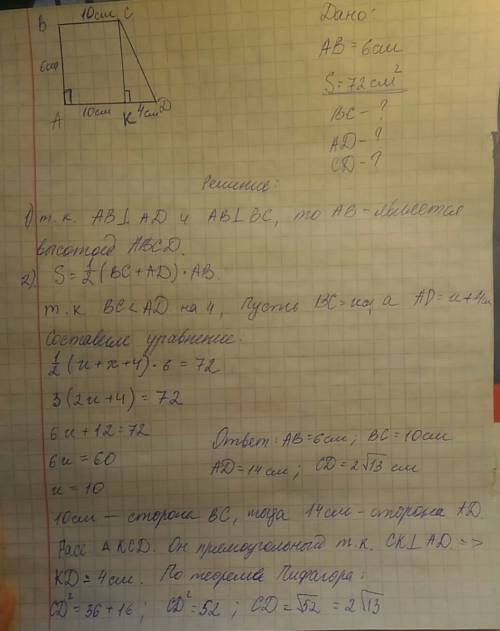 10см
B
C
6см
A
10см
K
4см
D
Дано:
AB = 6см
S = 72 см²
BC - ?
AD - ?
CD - ?
Решение:
1) т.к. AB⊥AD и AB⊥BC, то AB - является
высотой ABCD.
2) S = 1/2 (BC + AD) · AB.
т.к BC < AD на 4, Пусть BC = x, а AD = x+4см
Составим уравнение:
1/2 (x + x + 4) · 6 = 72
3(2x+4) = 72
6x + 12 = 72
6x = 60
x = 10
Ответ: AB = 6см; BC = 10см
AD = 14см; CD = 2√13 см
10см — сторона BC, тогда 14см - сторона AD.
Расс △ KCD. Он прямоугольный т.к. CK⊥AD =>
KD = 4см. По теореме Пифагора:
CD² = 36 + 16; CD² = 52; CD = √52 = 2√13